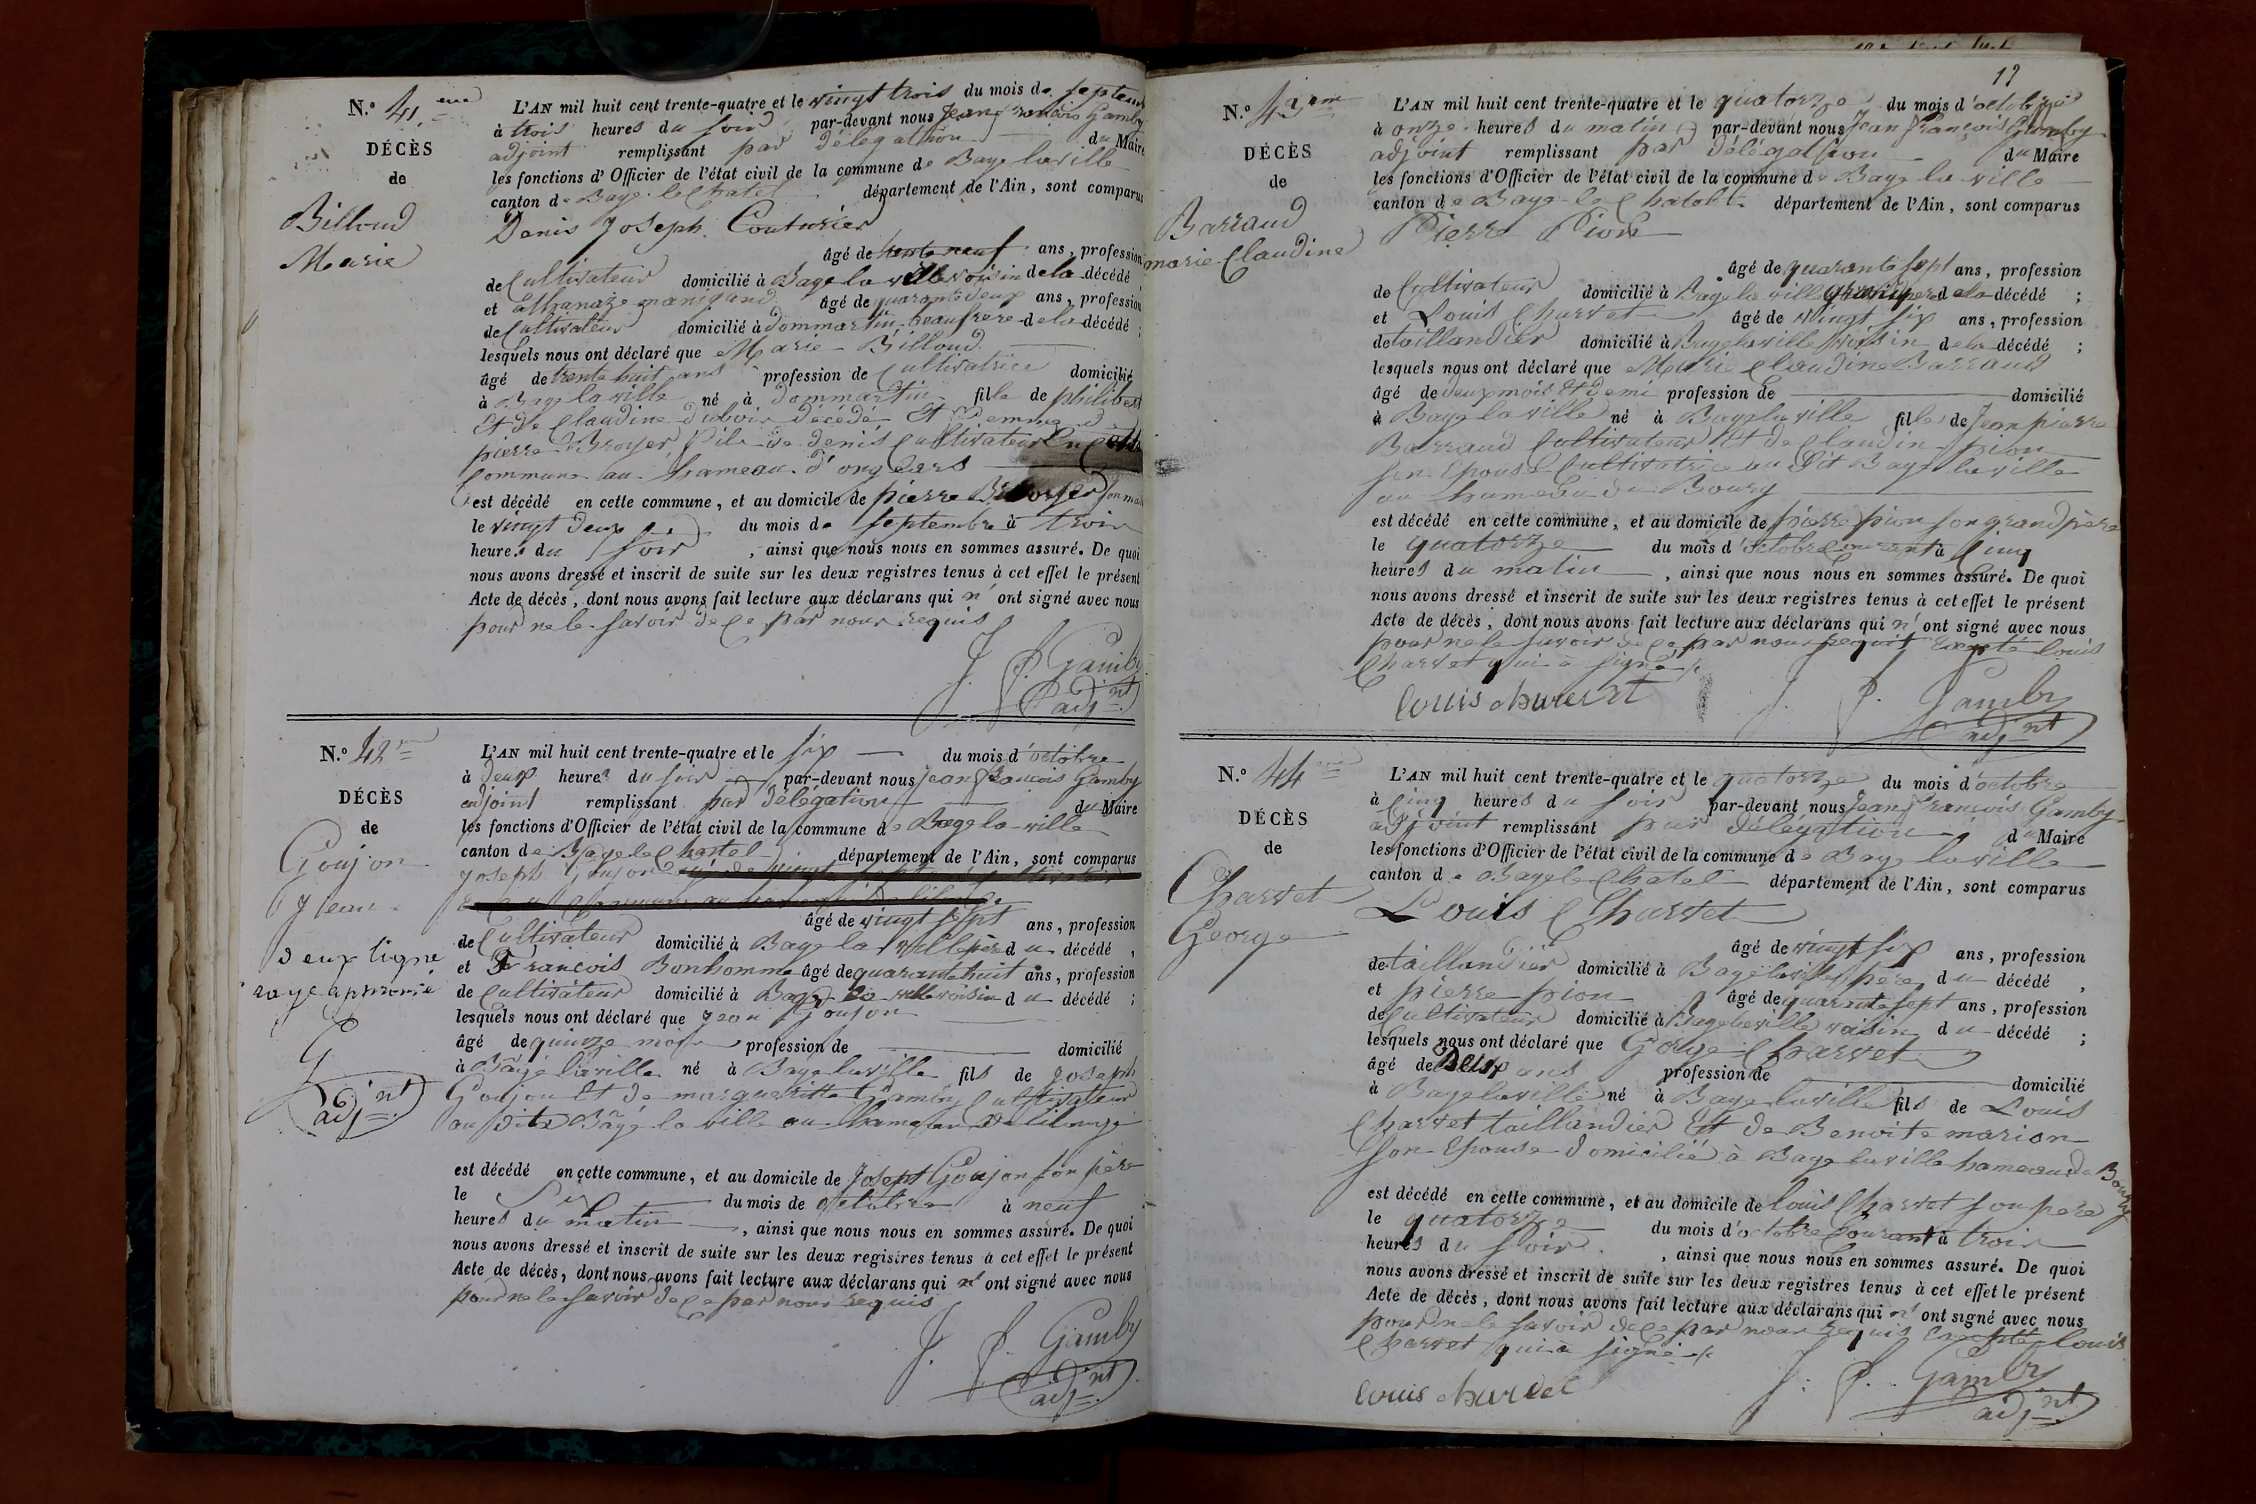 N.º 41.eme
DÉCÈS
de
Billoud
Marie
L'AN mil huit cent trente-quatre et le vingt trois du mois de septembre
à trois heures du soir par-devant nous Jean françois Gamby
adjoint remplissant par délégation du Maire
les fonctions d'Officier de l'état civil de la commune de Bage laville
canton de Bagé le Chatel département de l'Ain, sont comparus
Denis Joseph Couturier
âgé de trente neuf ans, profession
de Cultivateur domicilié à Bage la ville voisin de la décédé
et Athanaze mangand âgé de quarante deux ans, profession
de Cultivateur domicilié à dommartin beaufrere de la décédé ;
lesquels nous ont déclaré que Marie Billoud
âgé de trente huit ans profession de Cultivatrice domicilié
à Bage laville né à dommartin fille de philibert
Et de Claudine dubois décédé Et femme d
pierre Broyer fils de denis Cultivateur En cette
Commune au hameau d'onglers
est décédé en cette commune, et au domicile de pierre Broyer son mari
le vingt deux du mois de septembre à trois
heures du soir, ainsi que nous nous en sommes assuré. De quoi
nous avons dressé et inscrit de suite sur les deux registres tenus à cet effet le présent
Acte de décès, dont nous avons fait lecture aux déclarans qui n' ont signé avec nous
pour ne le savoir de ce par nous requis
J. f. Gamby
adj.nt
N.º 42
DÉCÈS
de
Goujon
Jean
deux ligne
rayé approuvé
G
adj.nt
L'AN mil huit cent trente-quatre et le six du mois d'octobre
à deux heures du soir par-devant nous Jean françois Gamby
adjoint remplissant par délégation du Maire
les fonctions d'Officier de l'état civil de la commune de Bage la ville
canton de Bage le Chatel département de l'Ain, sont comparus
Joseph Goujon
âgé de vingt sept ans, profession
de Cultivateur domicilié à Bage la ville père du décédé,
et François Bonhomme âgé de quarante huit ans, profession
de Cultivateur domicilié à Bage la ville voisin du décédé ;
lesquels nous ont déclaré que Jean Goujon
âgé de quinze mois profession de domicilié
à Bâgé laville né à Bâgé laville fils de Joseph
Goujon Et de margueritte Gamby Cultivateur
au dit Bâgé la ville au hameau de
est décédé en cette commune, et au domicile de Joseph Goujon son père
le Six du mois de octobre à neuf
heures du matin, ainsi que nous nous en sommes assuré. De quoi
nous avons dressé et inscrit de suite sur les deux registres tenus à cet effet le présent
Acte de décès, dont nous avons fait lecture aux déclarans qui n' ont signé avec nous
pour ne le savoir de ce par nous requis
J. f. Gamby
adj.nt
12
N.º 43eme
DÉCÈS
de
Barraud
marie Claudine
L'AN mil huit cent trente-quatre et le quatorze du mois d'octobre
à onze heures du matin par-devant nous Jean françois Gamby
adjoint remplissant par délégation du Maire
les fonctions d'Officier de l'état civil de la commune de Bage la ville
canton de Bage le Chatel département de l'Ain, sont comparus
Pierre Pion
âgé de quarante sept ans, profession
de Cultivateur domicilié à Bage la ville grand pere de la décédé ;
et Louis Charvet âgé de vingt six ans, profession
de taillandier domicilié à Bage laville voisin de la décédé ;
lesquels nous ont déclaré que Marie Claudine Barraud
âgé de deux mois et demi profession de domicilié
à Bage la ville né à Bage la ville fille de Jean pierre
Barraud Cultivateur Et de Claudin pion
son Epouse Cultivatrice au Dit Bage laville
au hameau de Boury
est décédé en cette commune, et au domicile de pierre pion son grand père
le quatorze du mois d'octobre Courant à Cinq
heures du matin, ainsi que nous nous en sommes assuré. De quoi
nous avons dressé et inscrit de suite sur les deux registres tenus à cet effet le présent
Acte de décès, dont nous avons fait lecture aux déclarans qui n' ont signé avec nous
pour ne le savoir de ce par nous requis Excepté louis
Charvet qui a signé
louis charvet J. f. Gamby
adj.nt
N.º 44eme
DÉCÈS
de
Charvet
George
L'AN mil huit cent trente-quatre et le quatorze du mois d'octobre
à Cinq heures du soir par-devant nous Jean françois Gamby
adjoint remplissant par délégation du Maire
les fonctions d'Officier de l'état civil de la commune de Bage laville
canton de Bage le Chatel département de l'Ain, sont comparus
Louis Charvet
âgé de vingt six ans, profession
de taillandier domicilié à Bage laville père du décédé,
et pierre pion âgé de quarante sept ans, profession
de Cultivateur domicilié à Bage laville voisin du décédé ;
lesquels nous ont déclaré que George Charvet
âgé de Deux ans profession de domicilié
à Bage laville né à Bage laville fils de Louis
Charvet taillandier Et de Benoite marion
son Epouse domicilié à Bage laville hameau de Boury
est décédé en cette commune, et au domicile de louis Charvet son pere
le quatorze du mois d'octobre Courant à trois
heures du soir, ainsi que nous nous en sommes assuré. De quoi
nous avons dressé et inscrit de suite sur les deux registres tenus à cet effet le présent
Acte de décès, dont nous avons fait lecture aux déclarans qui n' ont signé avec nous
pour ne le savoir de ce par nous requis Excepté louis
Charvet qui a signé
louis charvet J. f. Gamby
adj.nt